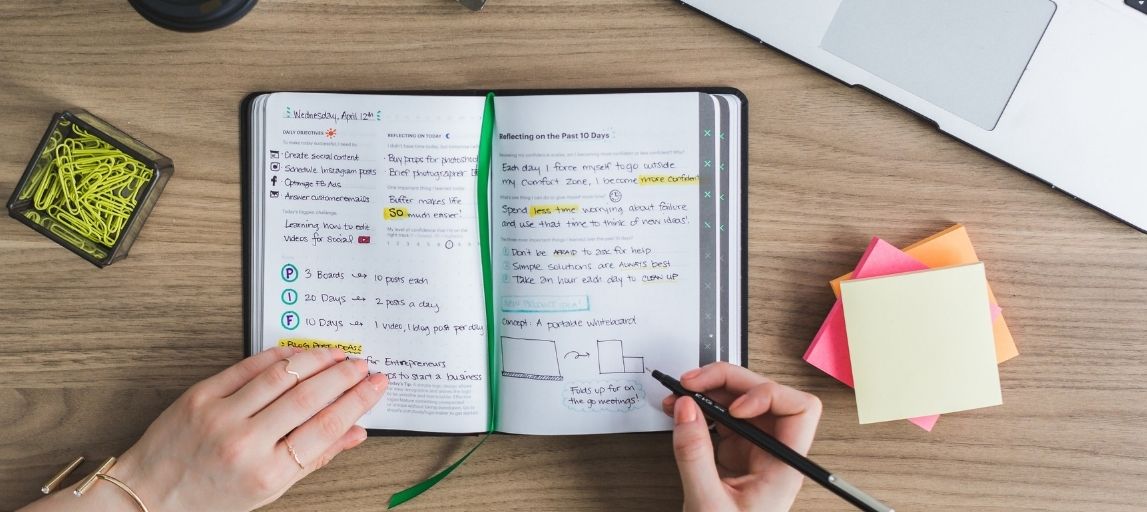 Wednesday, April 12th
DAILY OBJECTIVES
To make today successful, I need to
Create social content
Schedule Instagram posts
Optimize FB Ads
Answer customer emails
Today's biggest challenge
Learning how to edit
videos for social
REFLECTING ON TODAY
Buy props for photoshoot
Brief photographer
One important thing I learned today
Buffer makes life
SO much easier!
My level of confidence that I'm on the
P 3 Boards → 10 posts each
I 20 Days → 2 posts a day
F 10 Days → 1 video, 1 blog post per day
BLOG POST IDEAS:
for Entrepreneurs
to start a business
Today's Tip:
Reflecting on the Past 10 Days
Each day I force myself to go outside
my comfort zone, I become more confident
Spend less time worrying about failure
and use that time to think of new ideas!
1 Don't be AFRAID to ask for help
2 Simple solutions are ALWAYS best
3 Take an hour each day to CLEAN UP
NEW PRODUCT IDEA!
Concept: A portable whiteboard
Folds up for on
the go meetings!